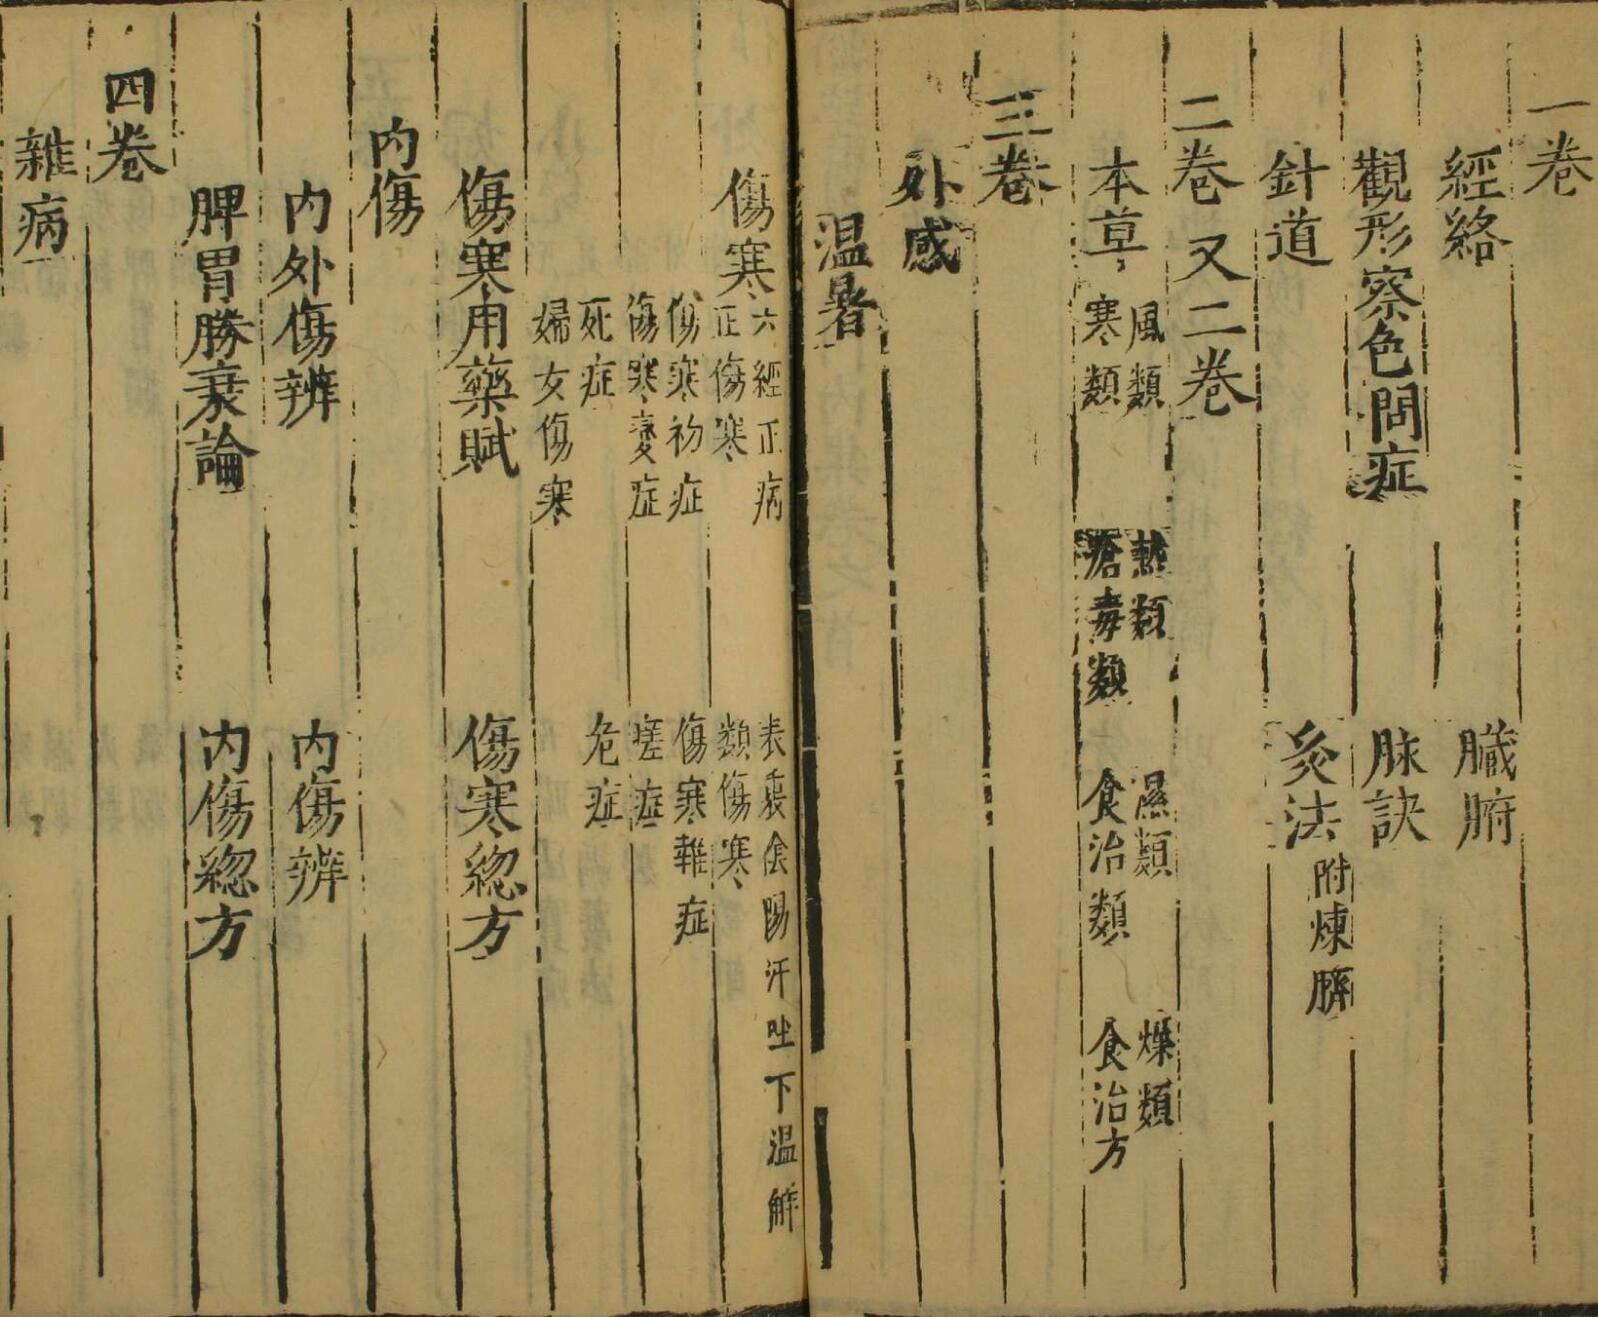 一卷
經絡　臟腑
觀形察色問症　脉訣
針道　灸法附煉臍
二卷　又二卷
本草　風類　熱類　濕類　燥類
寒類　瘡毒類　食治類　食治方
三卷
外感
温暑
傷寒　六經正病　表裏陰陽汗吐下温解
正傷寒　類傷寒
傷寒初症　傷寒雜症
傷寒變症　瘥症
死症　危症
婦女傷寒
傷寒用藥賦　傷寒緫方
内傷
内外傷辨　内傷辨
脾胃勝衰論　内傷緫方
四卷
雜病